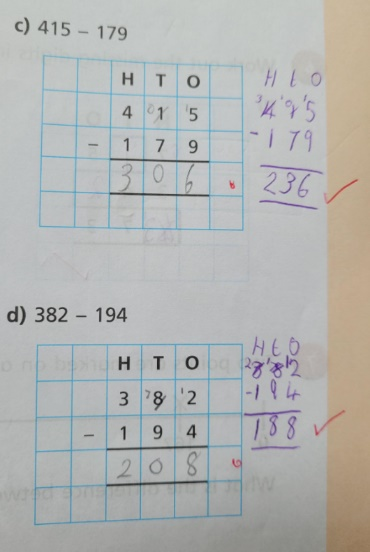 c) 415 – 179
H T O
4 ⁰1 ¹5
– 1 7 9
3 0 6
H t O
³4 ¹⁰1 ¹5
- 1 7 9
236
d) 382 – 194
H T O
3 ⁷8 ¹2
– 1 9 4
2 0 8
H t O
²3 ¹⁷8 ¹2
- 1 9 4
188